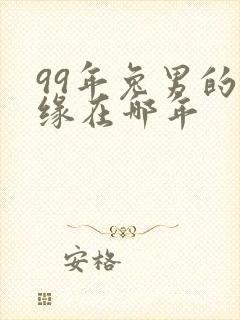 99年兔男的
缘在哪年
安格